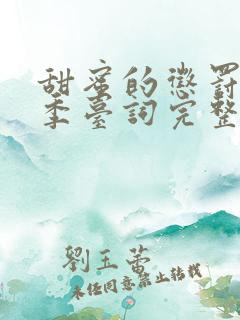 甜蜜的懲罰
季臺詞完整
劉玉蕾
未经同意禁止转载